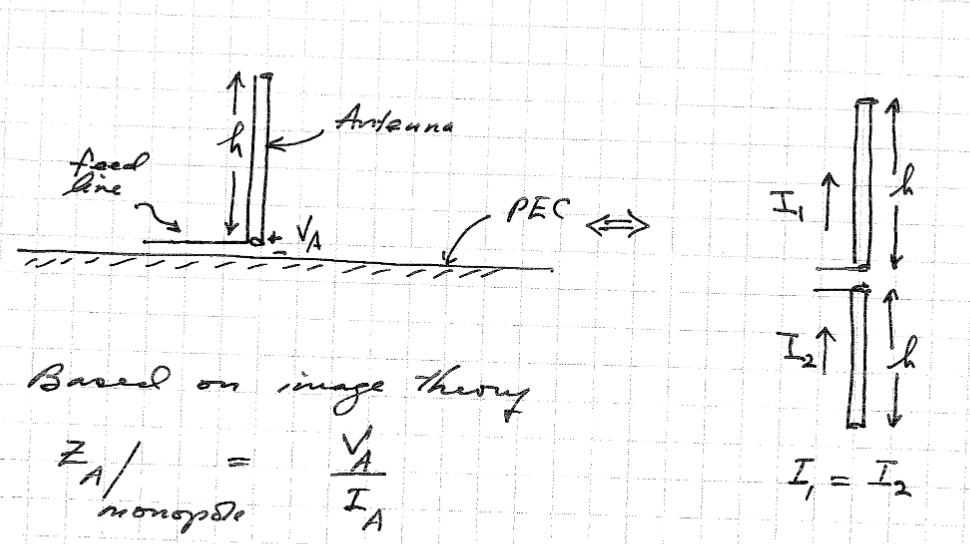 h
Antenna
feed
line
V_A
PEC ⇔
I_1
h
I_2
h
I_1 = I_2
Based on image theory
Z_A/monopole = V_A/I_A